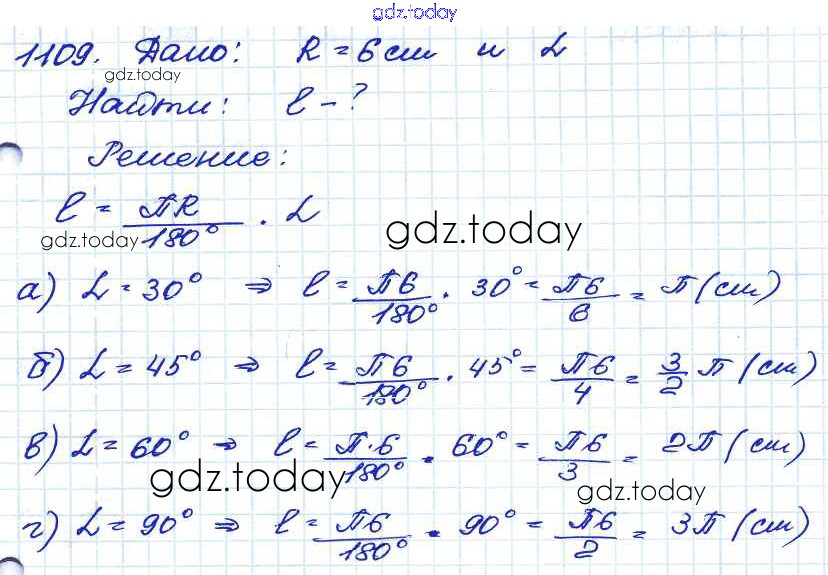 gdz.today
1109. Дано: R = 6 cm и L
gdz.today
Найти: l - ?
Решение:
l = ПR/180° · L
gdz.today
gdz.today
а) L = 30° ⇒ l = П6/180° · 30° = П6/6 = П (cm)
б) L = 45° ⇒ l = П6/180° · 45° = П6/4 = 3/2 П (cm)
в) L = 60° ⇒ l = П·6/180° · 60° = П6/3 = 2П (cm)
gdz.today
gdz.today
г) L = 90° ⇒ l = П6/180° · 90° = П6/2 = 3П (cm)